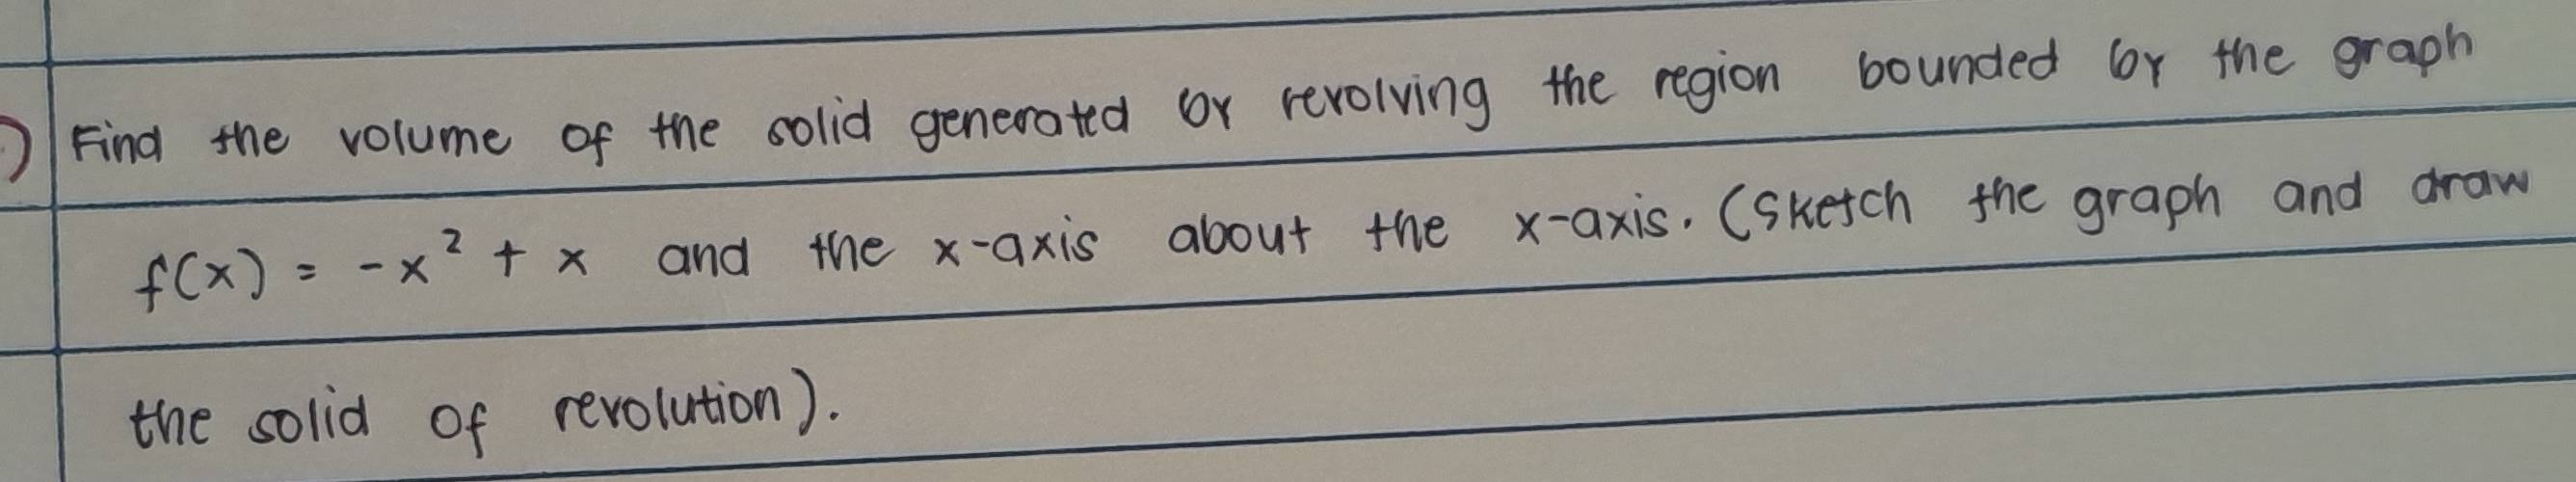 ) Find the volume of the solid generated by revolving the region bounded by the graph
f(x) = -x² + x and the x-axis about the x-axis. (Sketch the graph and draw
the solid of revolution).